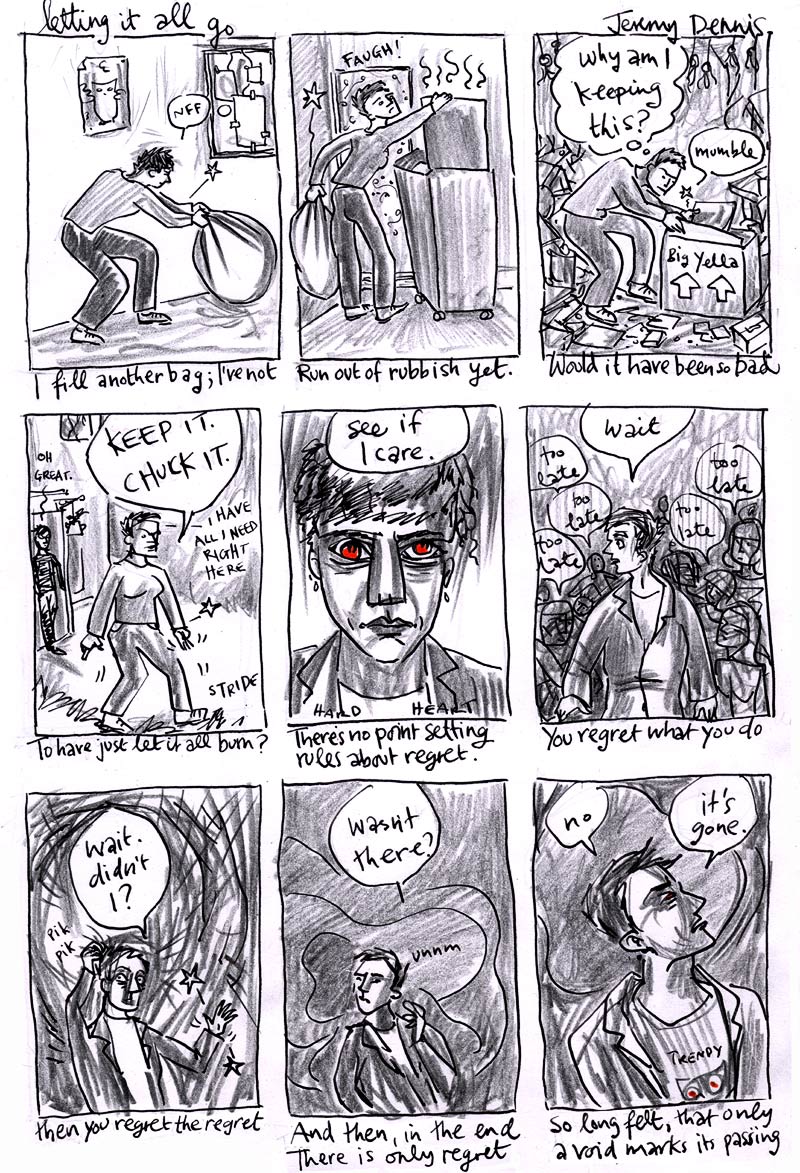 letting it all go
Jeremy Dennis
NFF
I fill another bag; I've not
FAUGH!
Run out of rubbish yet.
why am I
keeping
this?
mumble
Big Yella
Would it have been so bad
OH
GREAT.
KEEP IT.
CHUCK IT.
I HAVE
ALL I NEED
RIGHT
HERE
STRIDE
To have just let it all burn?
see if
I care.
HARD HEART
There's no point setting
rules about regret.
wait
too
late
too
late
too
late
too
late
too
late
You regret what you do
wait.
didn't
I?
Pik
Pik
then you regret the regret
wasn't
there?
unnm
And then, in the end
There is only regret
no
it's
gone.
TRENDY
So long felt, that only
a void marks its passing